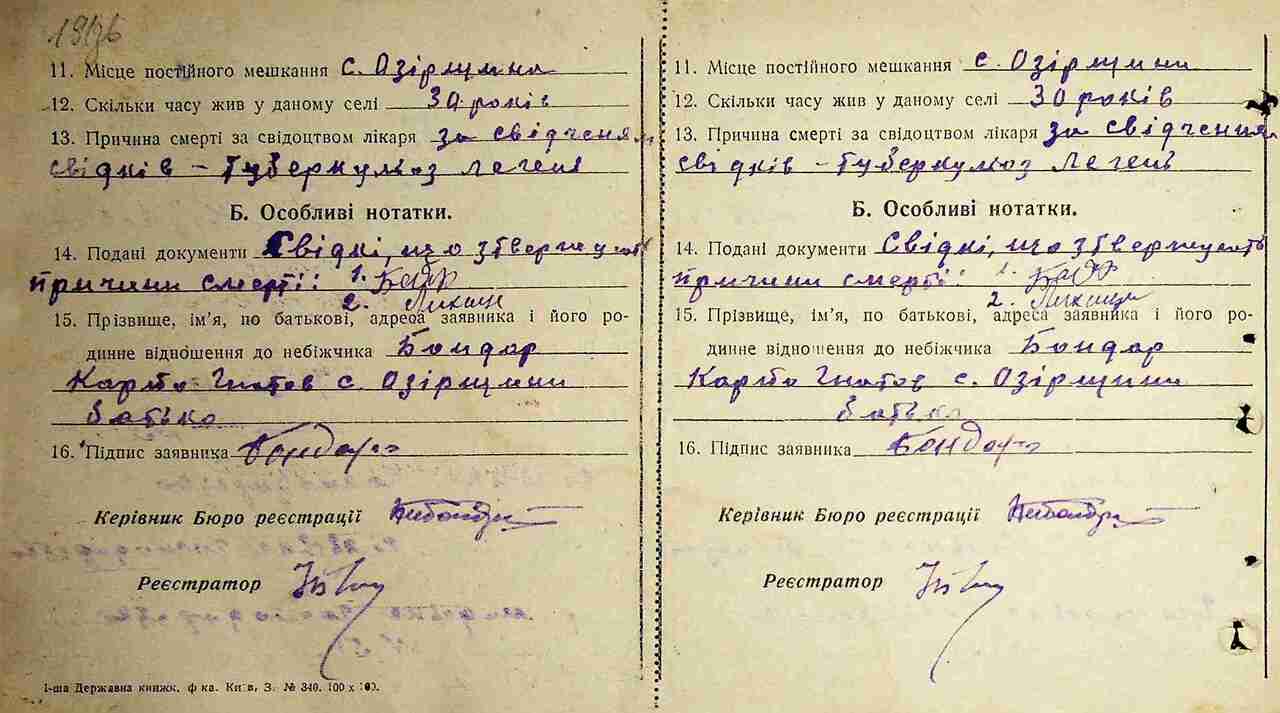 11. Місце постійного мешкання с. Озірщина
12. Скільки часу жив у даному селі 30 років
13. Причина смерті за свідоцтвом лікаря за свідченям
свідків – туберкульоз легень
Б. Особливі нотатки.
14. Подані документи Свідкі, що
причини смерті: 1.
2.
15. Прізвище, ім'я, по батькові, адреса заявника і його ро-
динне відношення до небіжчика Бондар
Карпо Гнатов с. Озірщини
батько
16. Підпис заявника Бондар
Керівник Бюро реєстрації
Реєстратор
1-ша Державна книжк. ф-ка. Київ, З. № 340. 100 х 100.
11. Місце постійного мешкання с. Озірщини
12. Скільки часу жив у даному селі 30 років
13. Причина смерті за свідоцтвом лікаря за свідченям
свідків – туберкульоз легень
Б. Особливі нотатки.
14. Подані документи Свідкі, що
причини смерті: 1.
2.
15. Прізвище, ім'я, по батькові, адреса заявника і його ро-
динне відношення до небіжчика Бондар
Карпо Гнатов с. Озірщини
батько
16. Підпис заявника Бондар
Керівник Бюро реєстрації
Реєстратор